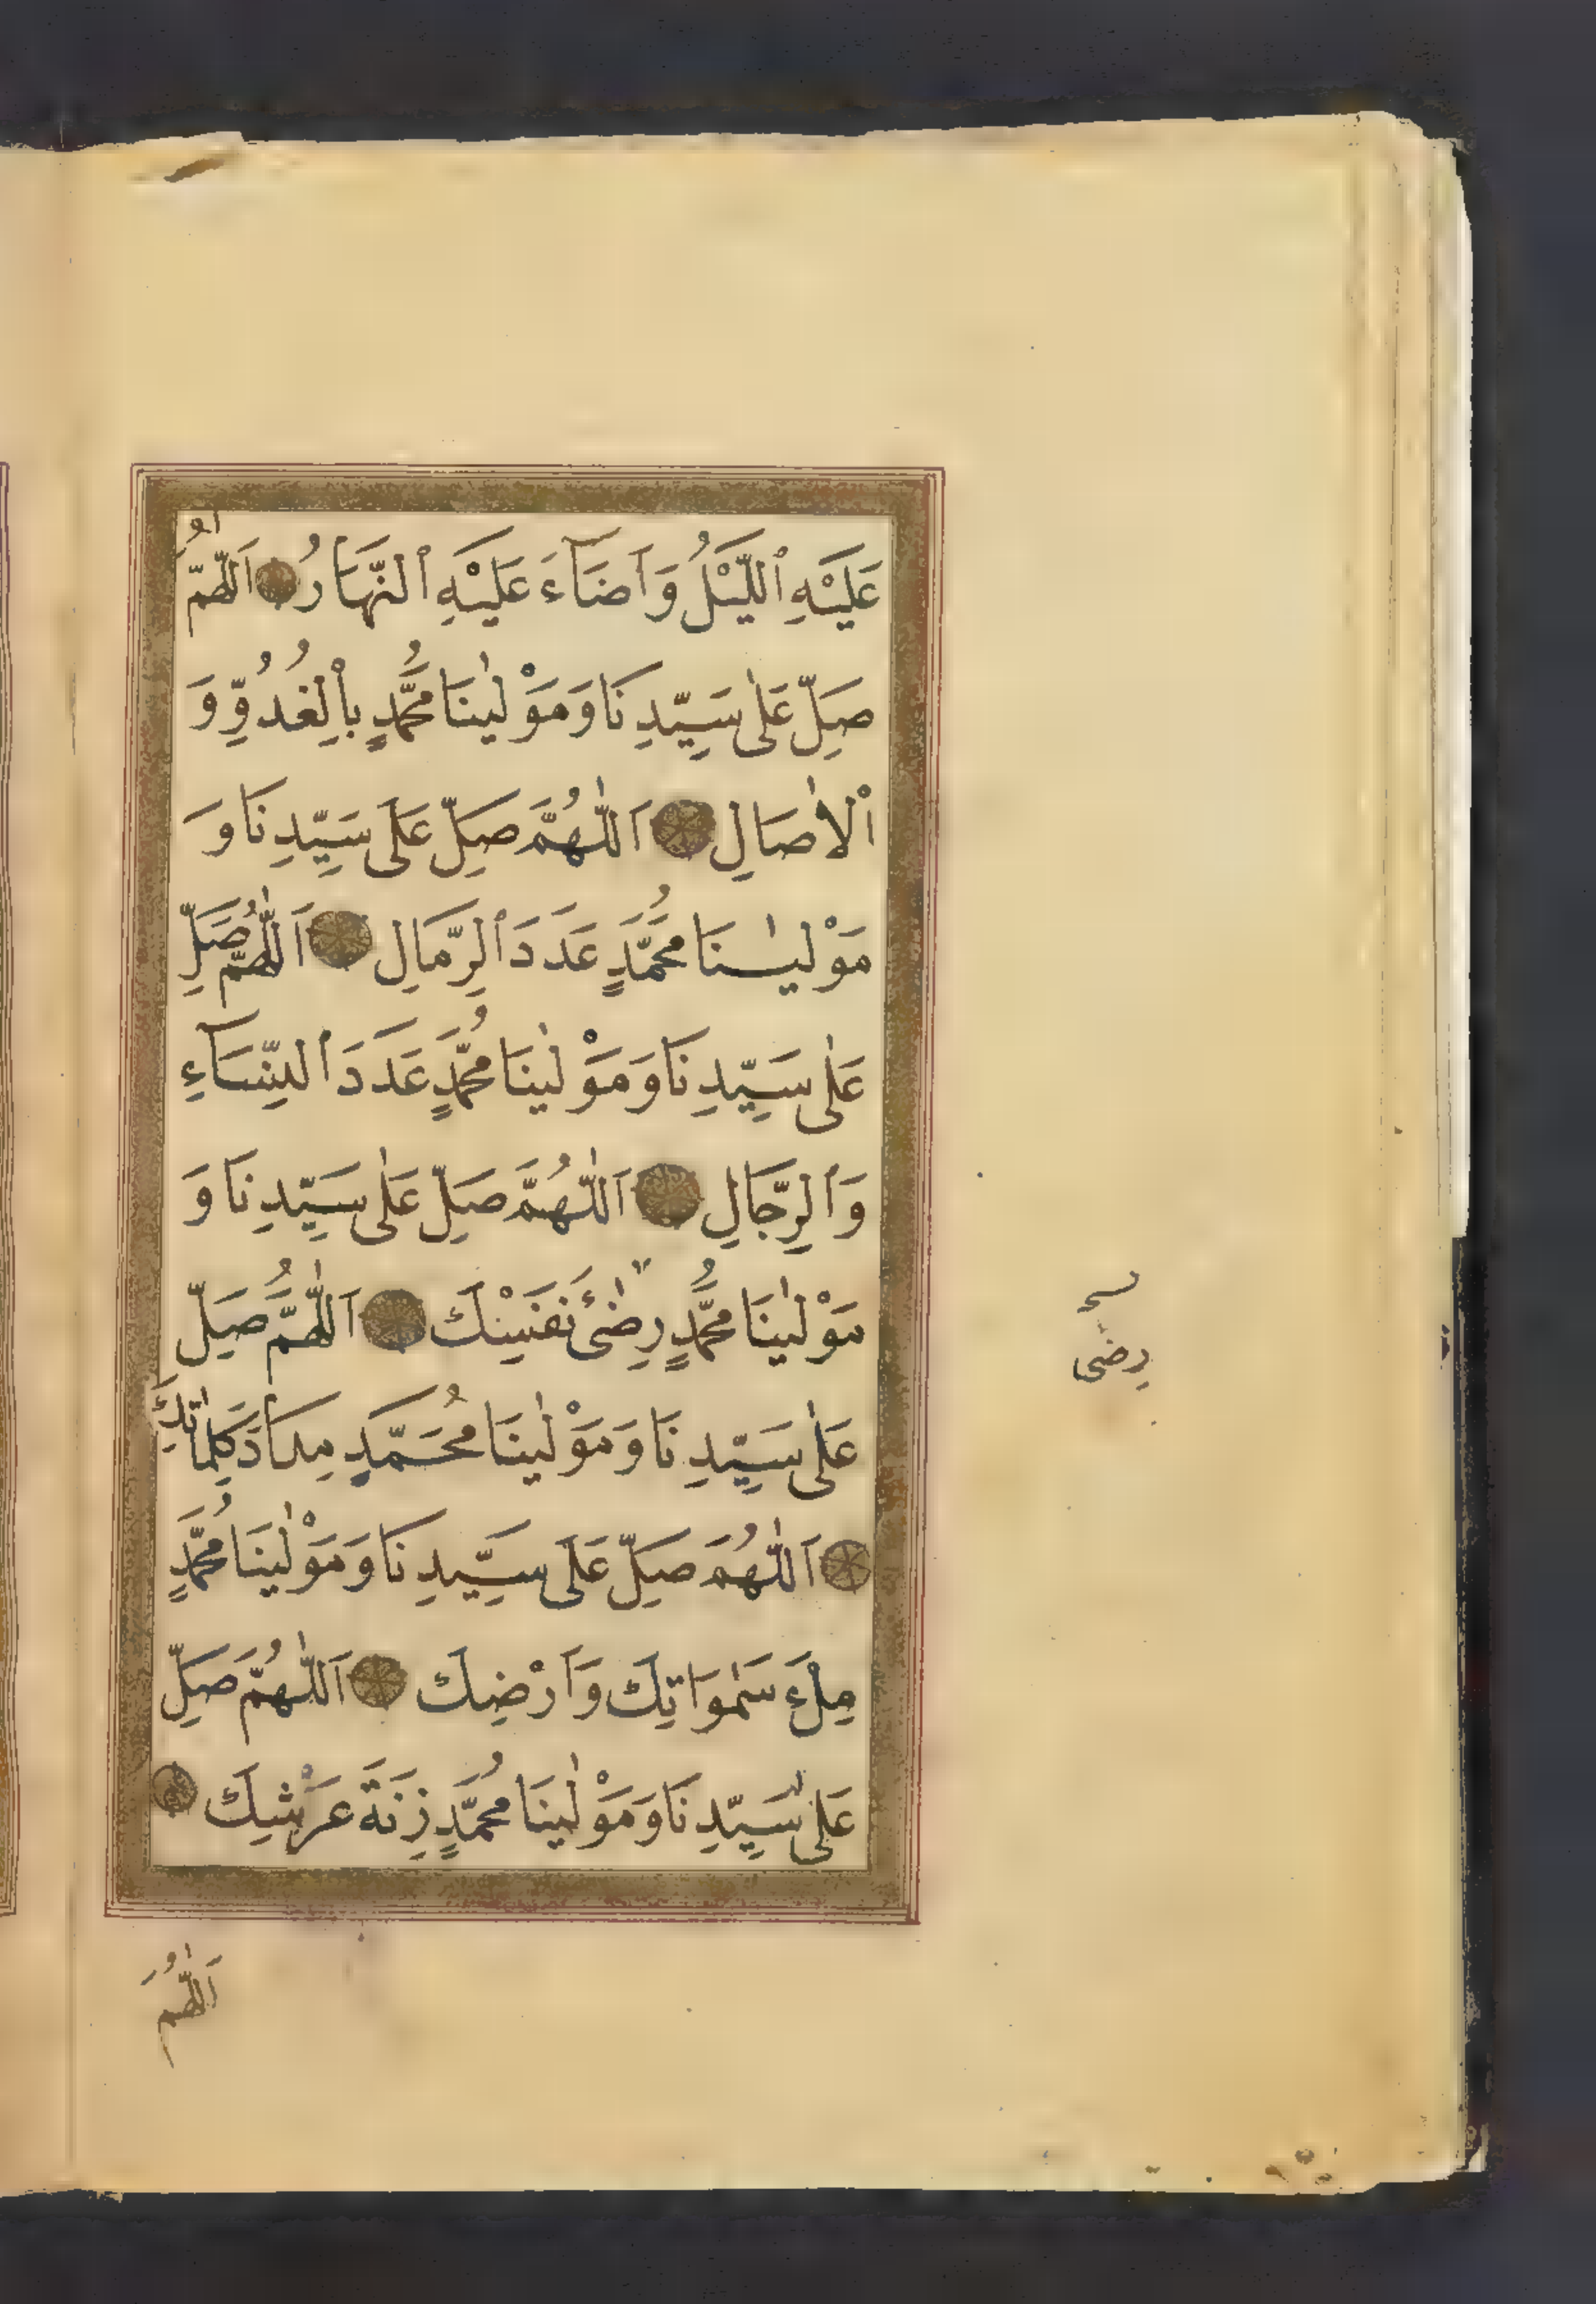 عَلَيْهِ ٱللَّيْلُ وَاَضَآءَ عَلَيْهِ ٱلنَّهَارُ اَللّٰهُمَّ
صَلِّ عَلٰى سَيِّدِنَا وَمَوْلٰينَا مُحَمَّدٍ بِالْغُدُوِّ وَ
ٱلْاٰصَالِ اَللّٰهُمَّ صَلِّ عَلَى سَيِّدِنَا وَ
مَوْلٰينَا مُحَمَّدٍ عَدَدَ ٱلرِّمَالِ اَللّٰهُمَّ صَلِّ
عَلٰى سَيِّدِنَا وَمَوْلٰينَا مُحَمَّدٍ عَدَدَ ٱلنِّسَآءِ
وَٱلرِّجَالِ اَللّٰهُمَّ صَلِّ عَلٰى سَيِّدِنَا وَ
مَوْلٰينَا مُحَمَّدٍ رِضٰىَٔ نَفْسِكَ اَللّٰهُمَّ صَلِّ
عَلٰى سَيِّدِنَا وَمَوْلٰينَا مُحَمَّدٍ مِدَادَ كَلِمَاتِكَ
اَللّٰهُمَّ صَلِّ عَلَى سَيِّدِنَا وَمَوْلٰينَا مُحَمَّدٍ
مِلْءَ سَمٰوَاتِكَ وَاَرْضِكَ اَللّٰهُمَّ صَلِّ
عَلٰى سَيِّدِنَا وَمَوْلٰينَا مُحَمَّدٍ زِنَةَ عَرْشِكَ
رضى
اَللّٰهُمَّ